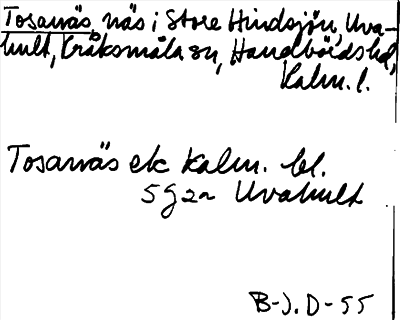 Tosanäs, näs i Store Hindsjön, Uva-
hult, Kråksmåla sn, Handbörds hd,
Kalm. l.
Tosanäs ek Kalm. bl.
5 g 2 n Uvahult
B-J. D-55